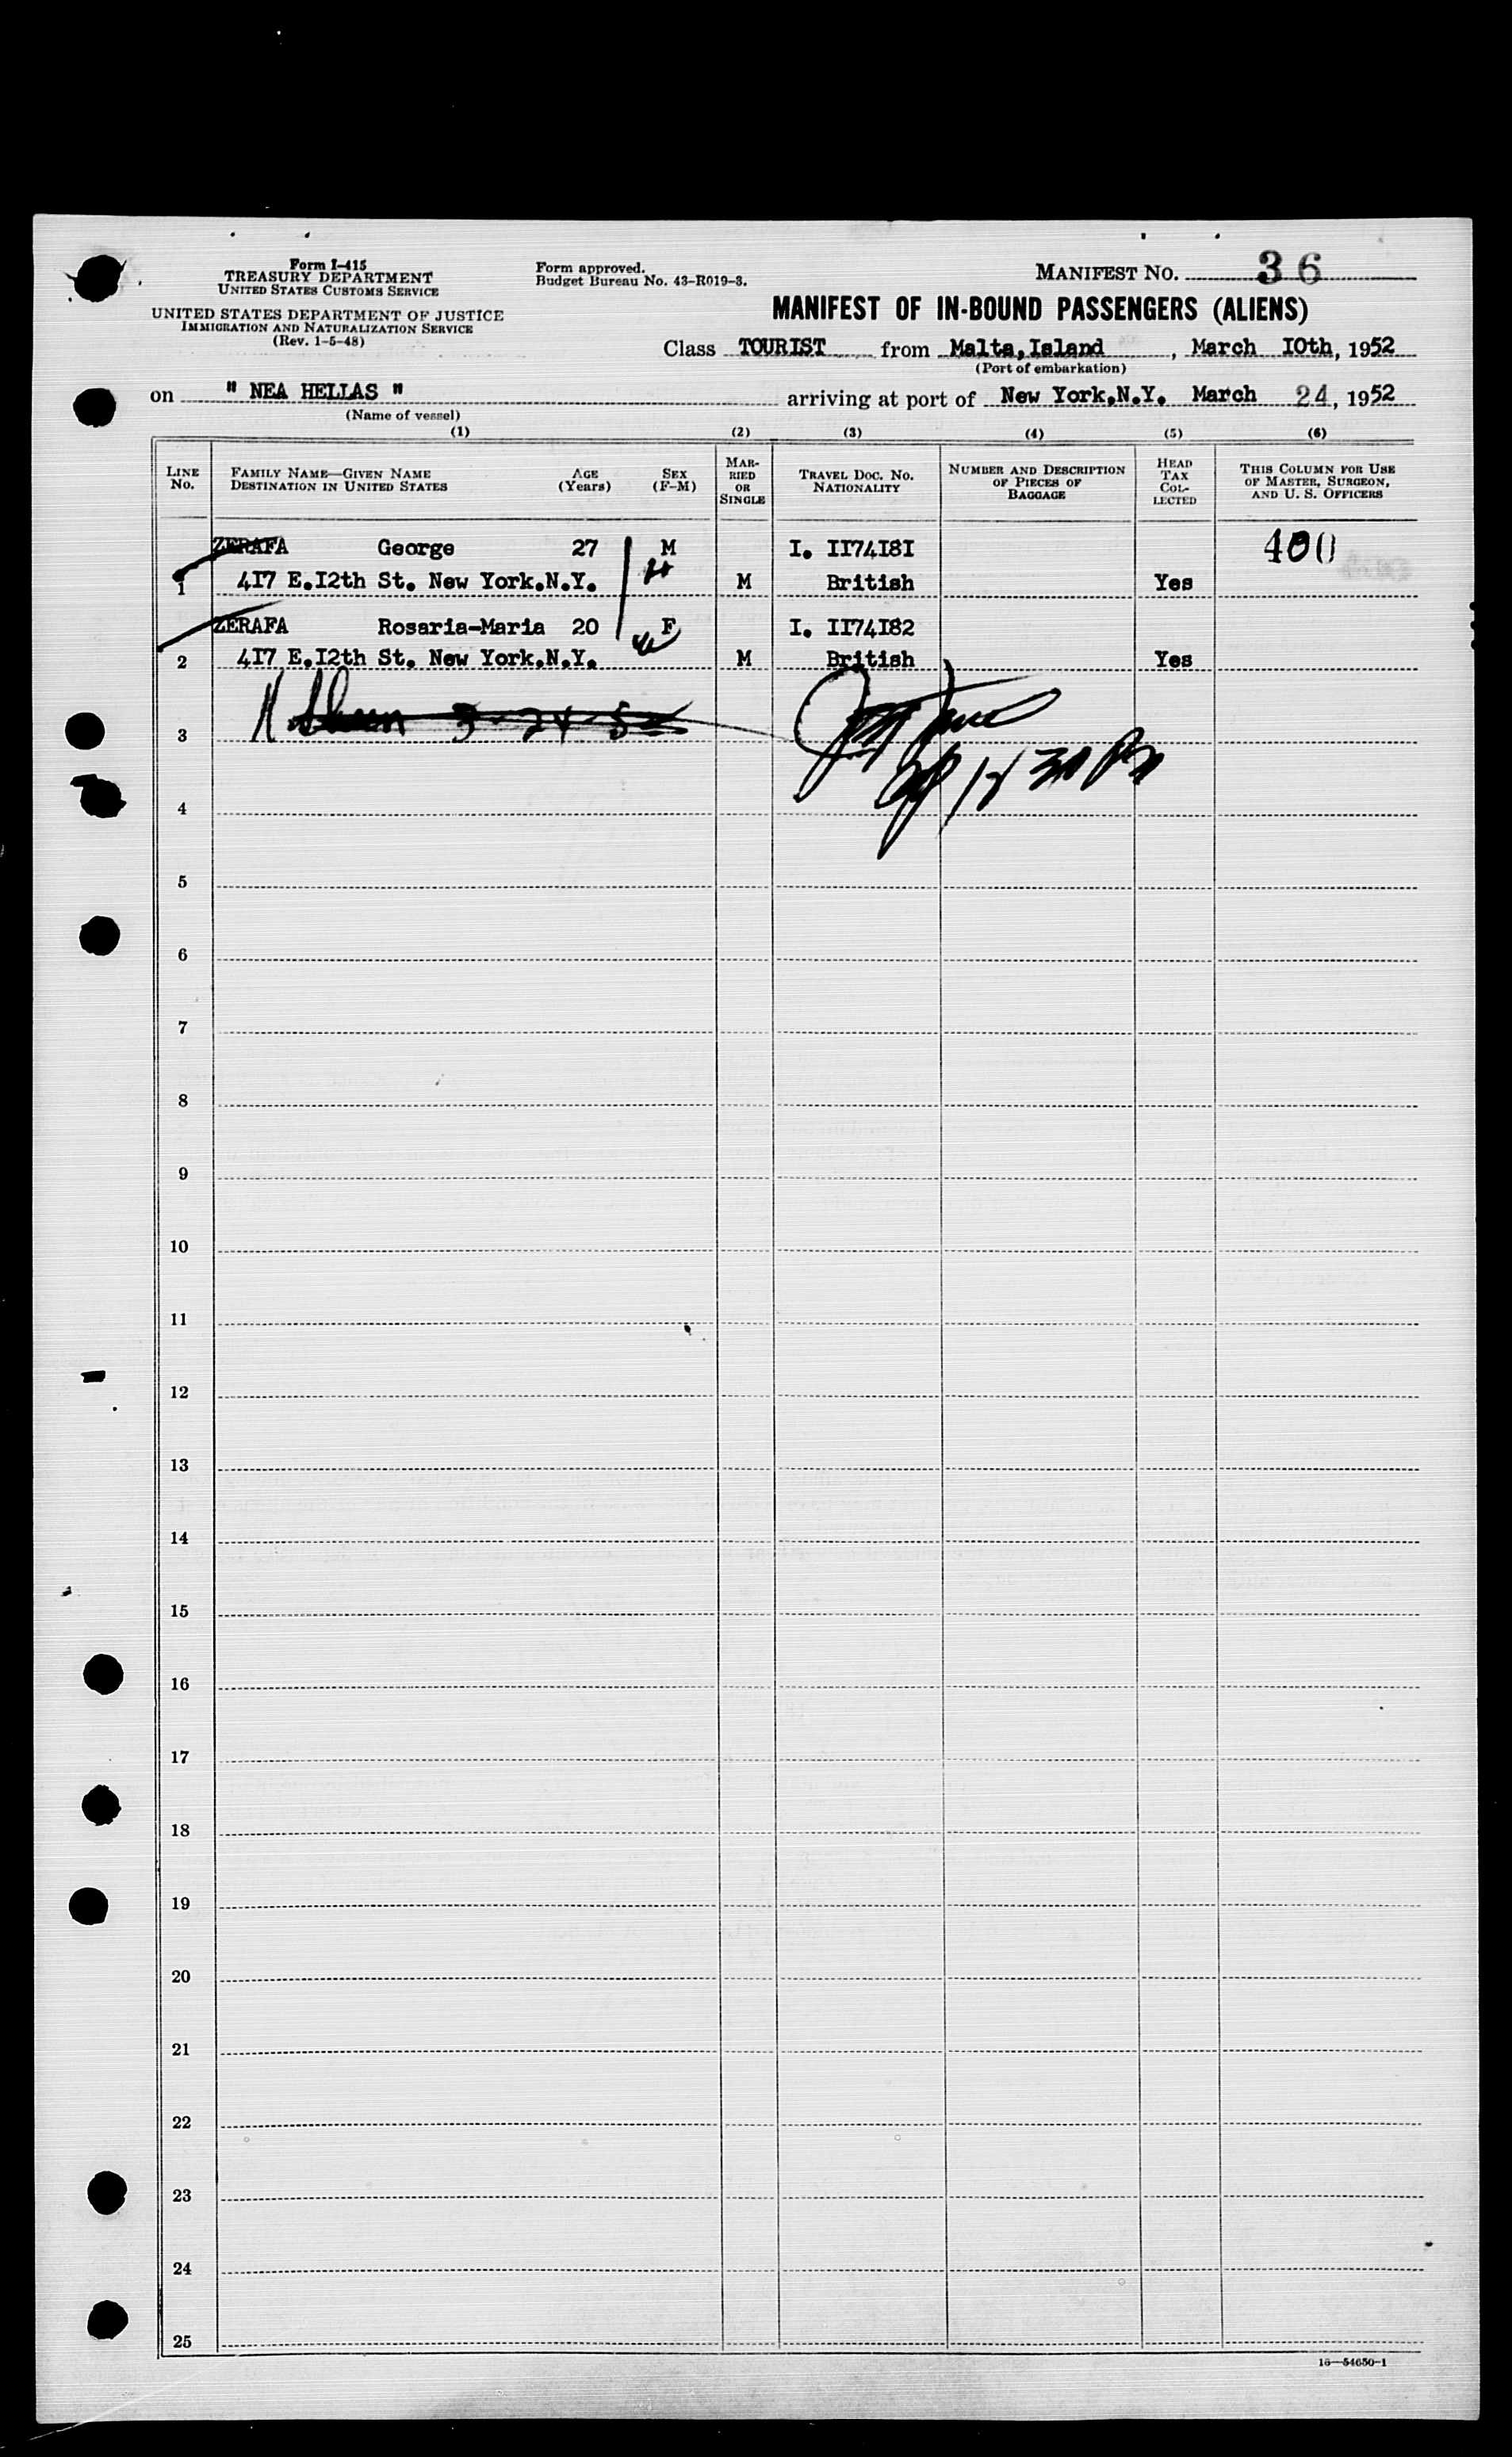 Form I-415
TREASURY DEPARTMENT
UNITED STATES CUSTOMS SERVICE
UNITED STATES DEPARTMENT OF JUSTICE
IMMIGRATION AND NATURALIZATION SERVICE
(Rev. 1-5-48)
Form approved.
Budget Bureau No. 43-R019-3.
MANIFEST NO. 36
MANIFEST OF IN-BOUND PASSENGERS (ALIENS)
Class TOURIST from Malta, Island, March IOth, 1952
(Port of embarkation)
on " NEA HELLAS " arriving at port of New York.N.Y. March 24, 1952
(Name of vessel)
(1) (2) (3) (4) (5) (6)
LINE No.
FAMILY NAME—GIVEN NAME
DESTINATION IN UNITED STATES
AGE (Years)
SEX (F-M)
MARRIED OR SINGLE
TRAVEL DOC. NO.
NATIONALITY
NUMBER AND DESCRIPTION OF PIECES OF BAGGAGE
HEAD TAX COLLECTED
THIS COLUMN FOR USE OF MASTER, SURGEON, AND U. S. OFFICERS
ZERAFA George 27 M I. II74I8I 400
1 4I7 E.I2th St. New York.N.Y. M British Yes
ZERAFA Rosaria-Maria 20 F I. II74I82
2 4I7 E.I2th St. New York.N.Y. M British Yes
3 3-24-52
4
5
6
7
8
9
10
11
12
13
14
15
16
17
18
19
20
21
22
23
24
25
16—54650-1